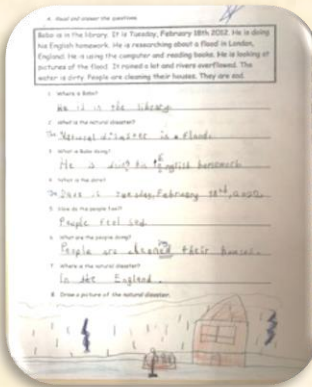 A. Read and answer the questions.
Bobo is in the library. It is Tuesday, February 18th 2002. He is doing
his English homework. He is researching about a flood in London,
England. He is using the computer and reading books. He is looking at
pictures of the flood. It rained a lot and rivers overflowed. The
water is dirty. People are cleaning their houses. They are sad.
1. Where is Bobo?
He is in the library.
2. What is the natural disaster?
The natural disaster is a flood.
3. What is Bobo doing?
He is doing his English homework.
4. What is the date?
The Date is tuesday, February 18
5. How do the people feel?
People feel sad.
6. What are the people doing?
People are cleaned their houses.
7. Where is the natural disaster?
In the England.
8. Draw a picture of the natural disaster.